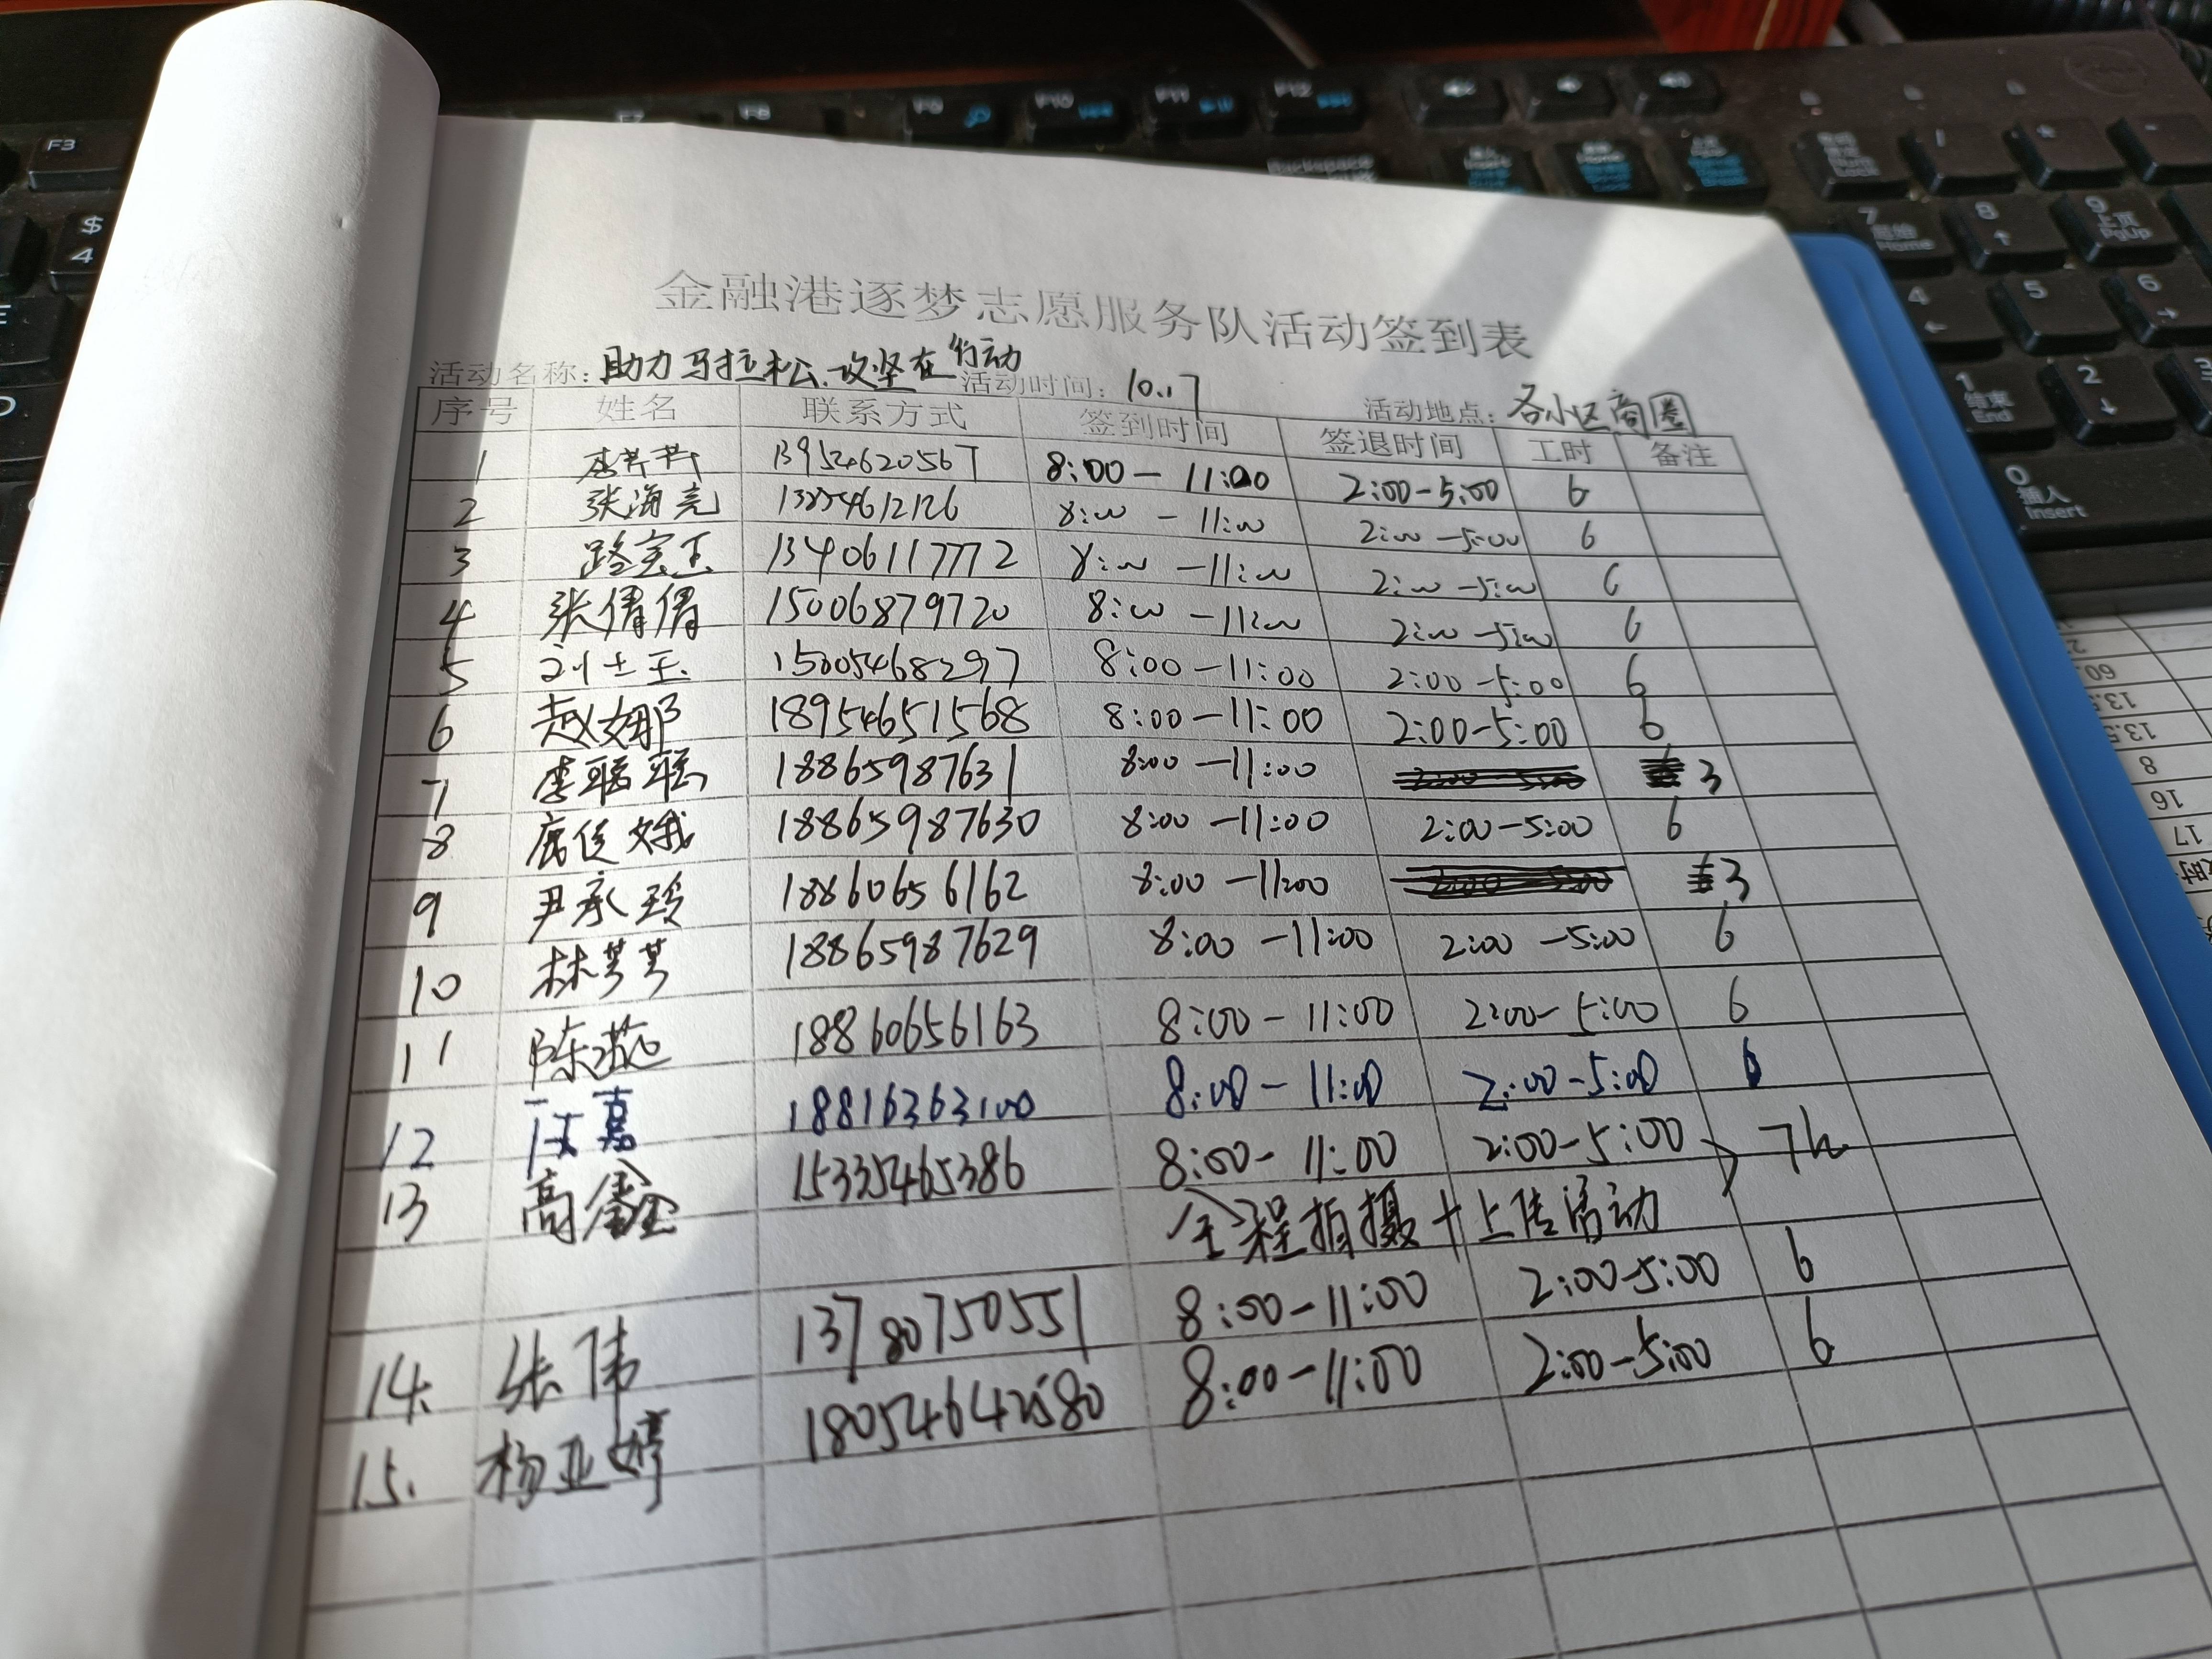 金融港逐梦志愿服务队活动签到表
活动名称：助力马拉松、攻坚在行动 活动时间：10.17 活动地点：各小区商圈
序号 姓名 联系方式 签到时间 签退时间 工时 备注
1 13954620567 8:00-11:00 2:00-5:00 6
2 张海亮 8:00-11:00 2:00-5:00 6
3 路宝玉 13406117772 8:00-11:00 2:00-5:00 6
4 张倩倩 15006879720 8:00-11:00 2:00-5:00 6
5 刘士玉 15005468297 8:00-11:00 2:00-5:00 6
6 赵娜 18954651568 8:00-11:00 2:00-5:00 6
7 李聪聪 18865987631 8:00-11:00 3
8 18865987630 8:00-11:00 2:00-5:00 6
9 尹承玲 18860656162 8:00-11:00 3
10 林芳芳 18865987629 8:00-11:00 2:00-5:00 6
11 陈 18860656163 8:00-11:00 2:00-5:00 6
12 嘉 18816363100 8:00-11:00 2:00-5:00 6
13 高鑫 15335465386 8:00-11:00 2:00-5:00 7h
全程拍摄+上传活动
14. 张伟 13780750551 8:00-11:00 2:00-5:00 6
15. 杨亚婷 18054642580 8:00-11:00 2:00-5:00 6